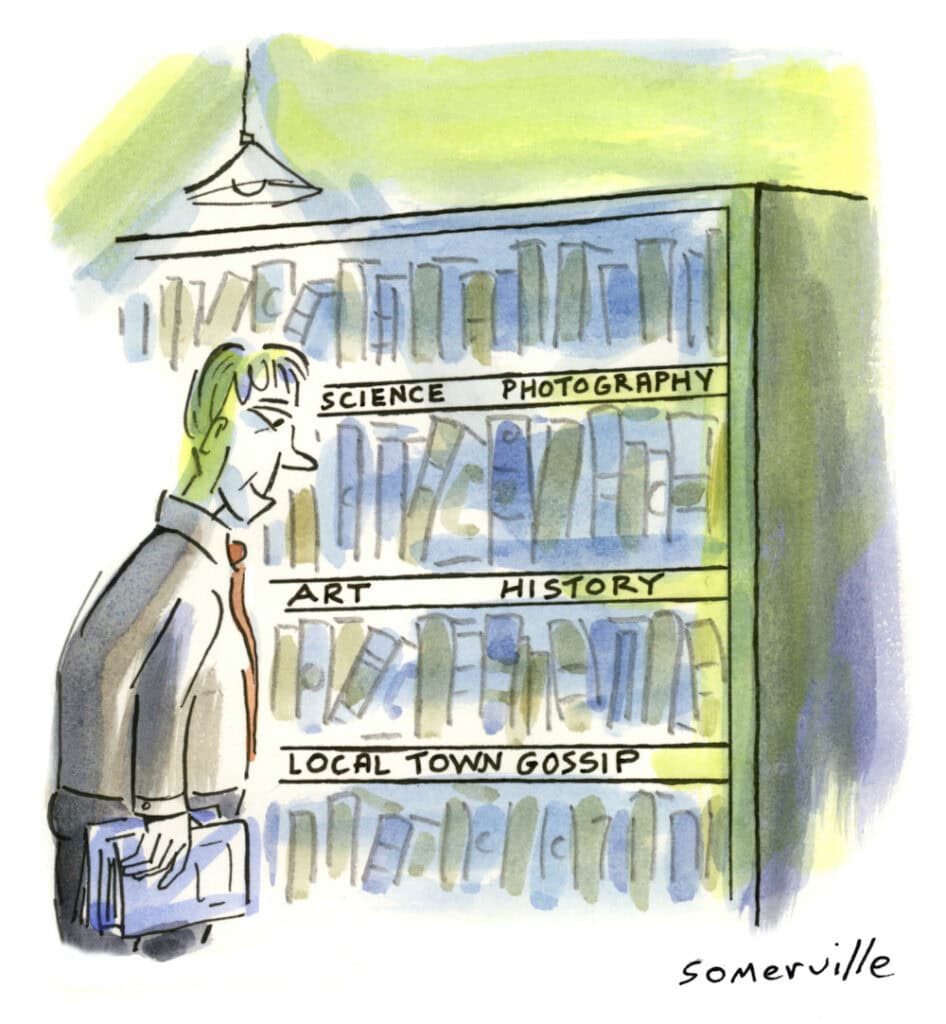 SCIENCE PHOTOGRAPHY
ART HISTORY
LOCAL TOWN GOSSIP
somerville